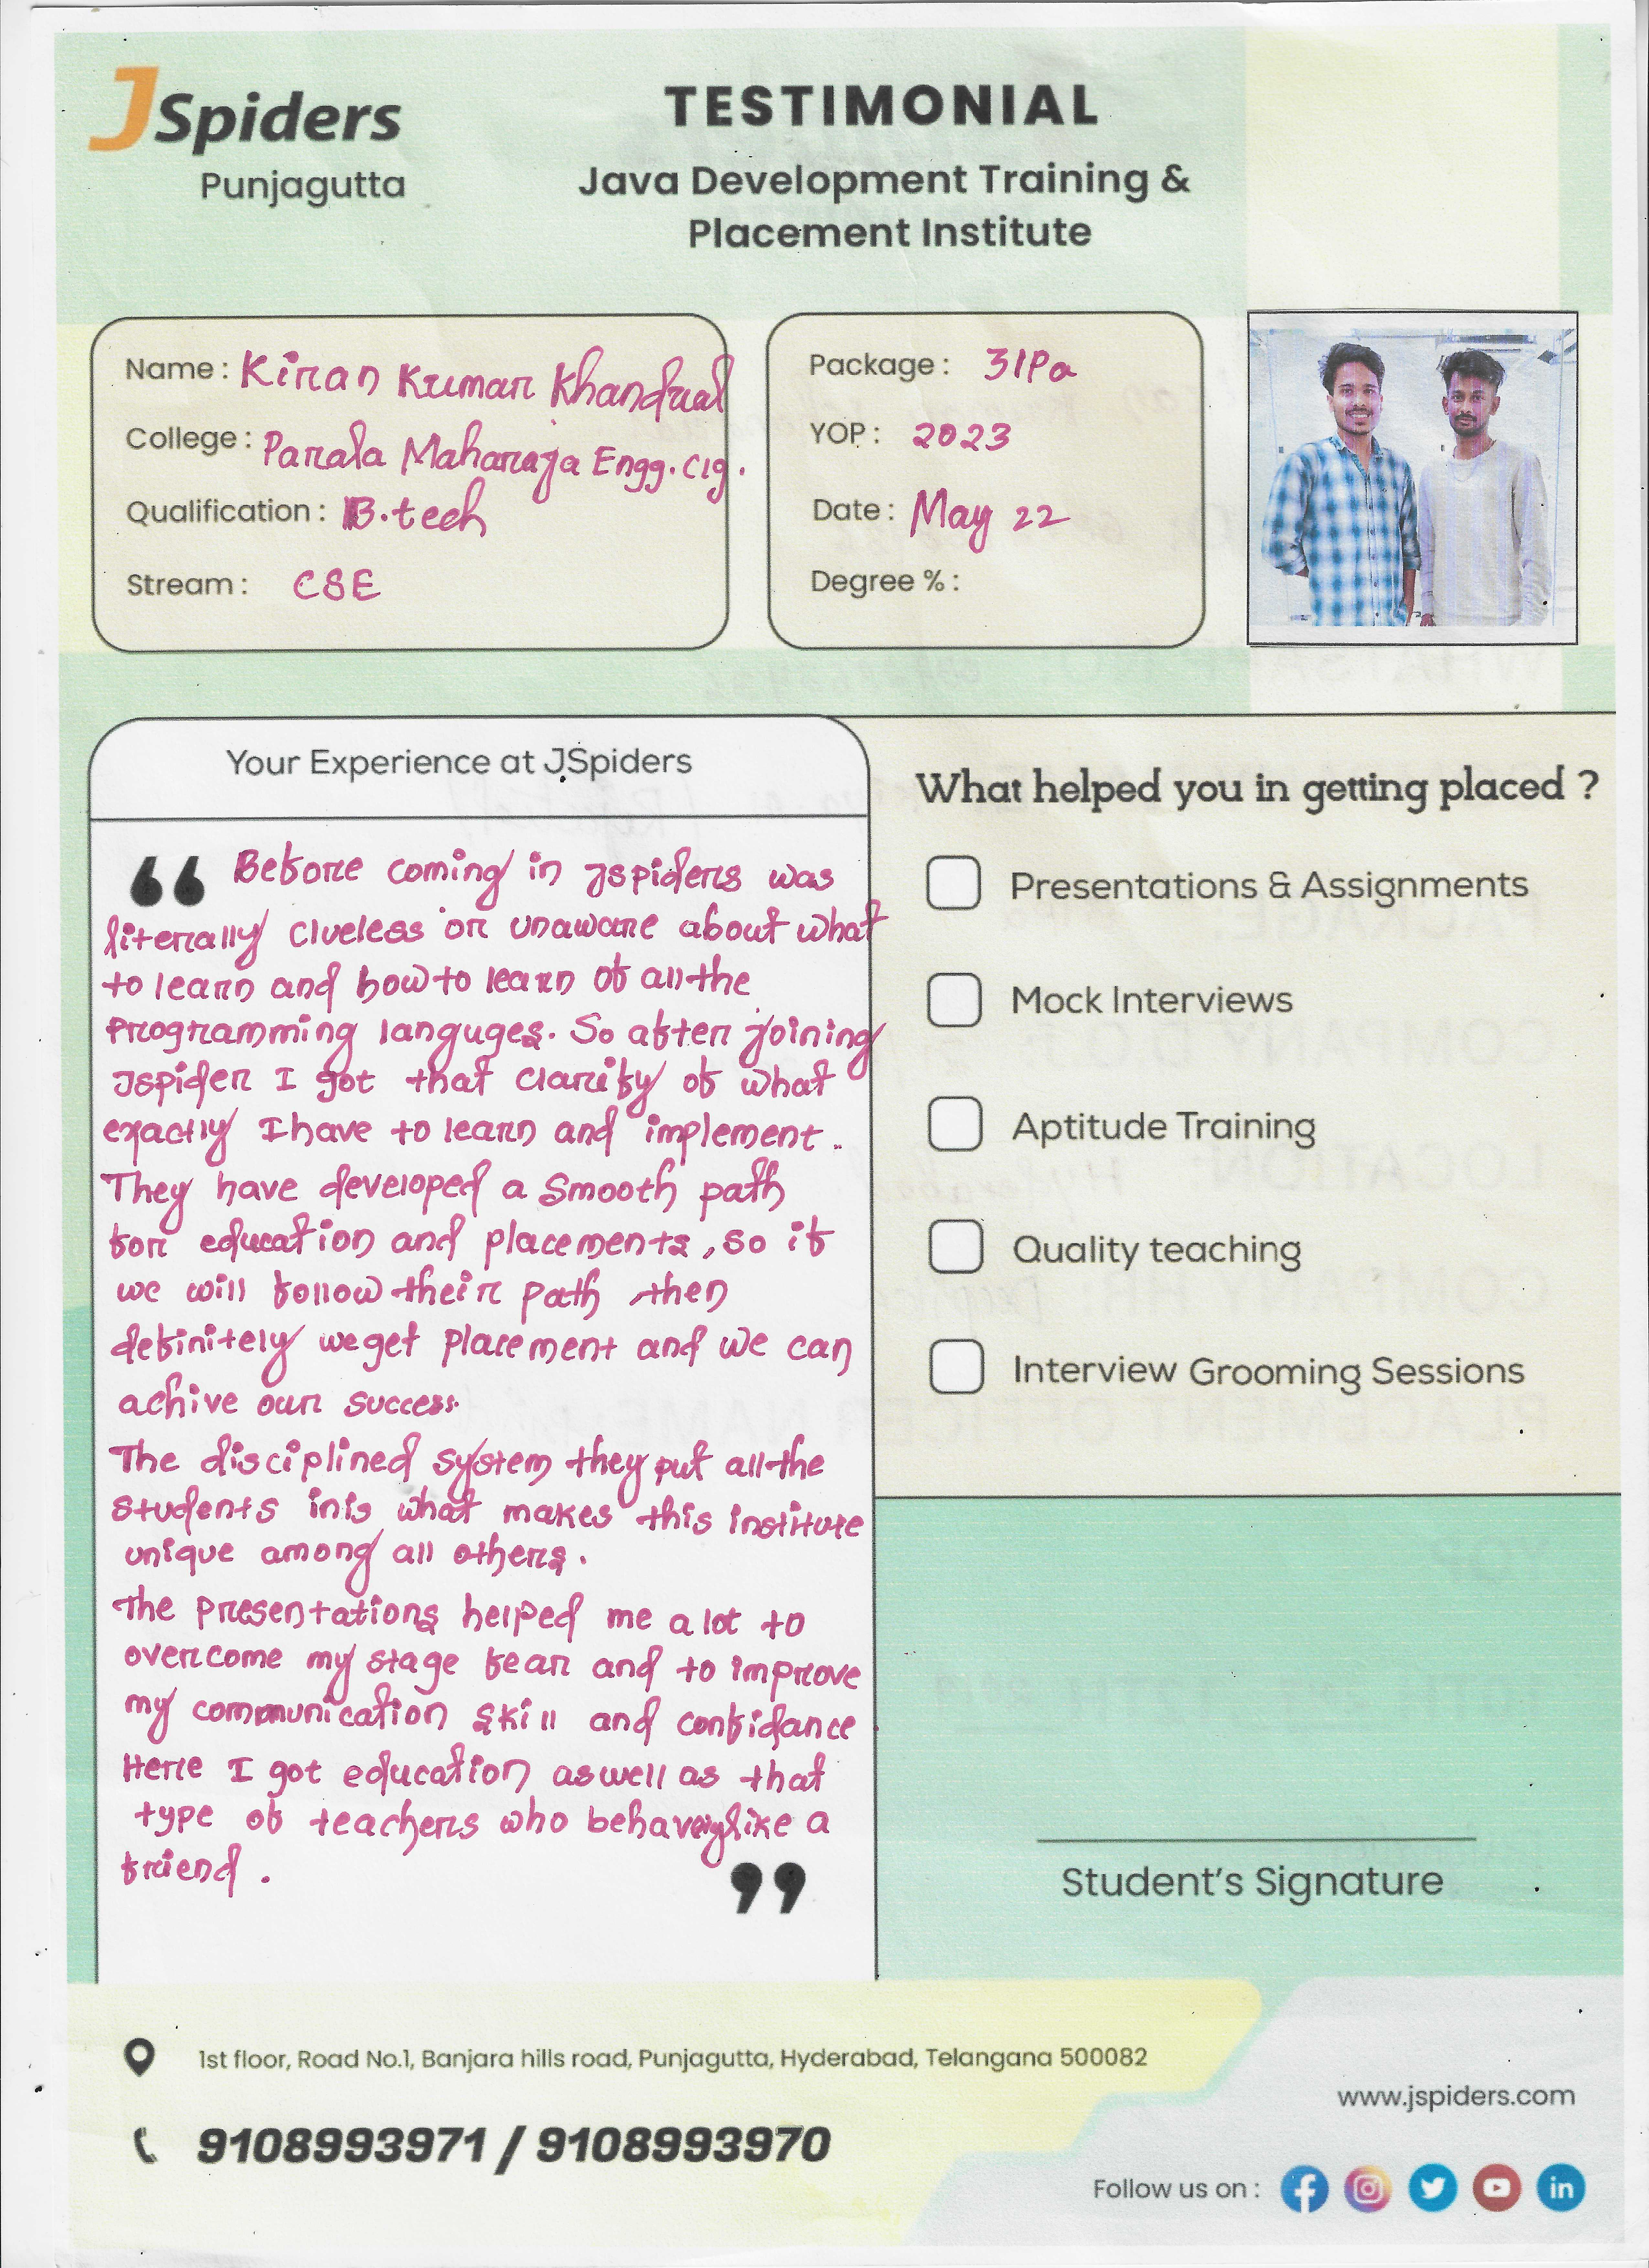 JSpiders
Punjagutta
TESTIMONIAL
Java Development Training &
Placement Institute
Name : Kiran Kumar Khandual
College : Parala Maharaja Engg. Clg.
Qualification : B.tech
Stream : CSE
Package : 3lPa
YOP : 2023
Date : May 22
Degree % :
Your Experience at JSpiders
“ Before coming in Jspiders was
literally clueless or unaware about what
to learn and how to learn of all the
programming languges. So after joining
Jspider I got that clarity of what
exactly I have to learn and implement.
They have developed a smooth path
for education and placements, so if
we will follow their path then
definitely we get placement and we can
achive our success.
The disciplined system they put all the
students in is what makes this institute
unique among all others.
The presentations helped me a lot to
overcome my stage fear and to improve
my communication skill and confidance
Here I got education as well as that
type of teachers who behave like a
friend. ”
What helped you in getting placed ?
Presentations & Assignments
Mock Interviews
Aptitude Training
Quality teaching
Interview Grooming Sessions
Student's Signature
1st floor, Road No.1, Banjara hills road, Punjagutta, Hyderabad, Telangana 500082
9108993971 / 9108993970
www.jspiders.com
Follow us on :